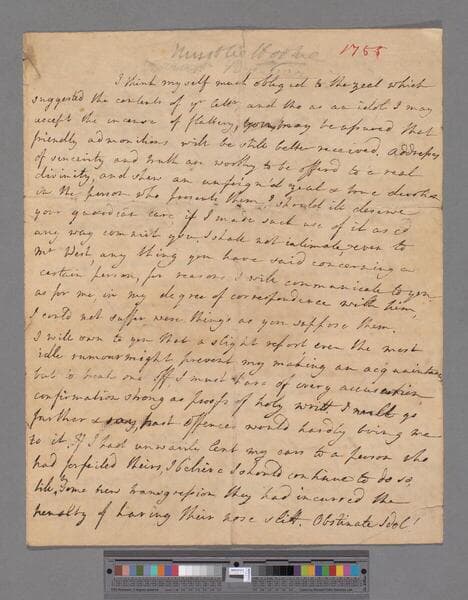 1755
I think myself much obliged to the zeal which
suggested the contents of yr letter and tho as an idol I may
accept the incense of flattery, you may be assured that
friendly admonitions will be still better received. Addresses
of sincerity and truth are worthy to be offerd to a real
divinity, and shew an unfeign'd zeal & true devotion
in the person who presents them. I should ill deserve
your guardian care if I made such use of it as cd
any way commit you. I shall not intimate, even to
Mr West, any thing you have said concerning a
certain person, for reasons I will communicate to you
as for me in my degree of correspondence with him,
I could not suffer were things as you suppose them.
I will own to you that a slight report even the most
idle rumour might prevent my making an acquaintance
but to break one off I must have of every accusation
confirmation strong as proofs of holy writt, I will go
further & say, past offences would hardly bring me
to it, If I had unwarily lent my ears to a person who
had forfeited theirs, I believe I should continue to do so,
till, some new transgression they had incurred the
penalty of having their nose slitt. Obstinate Idol!